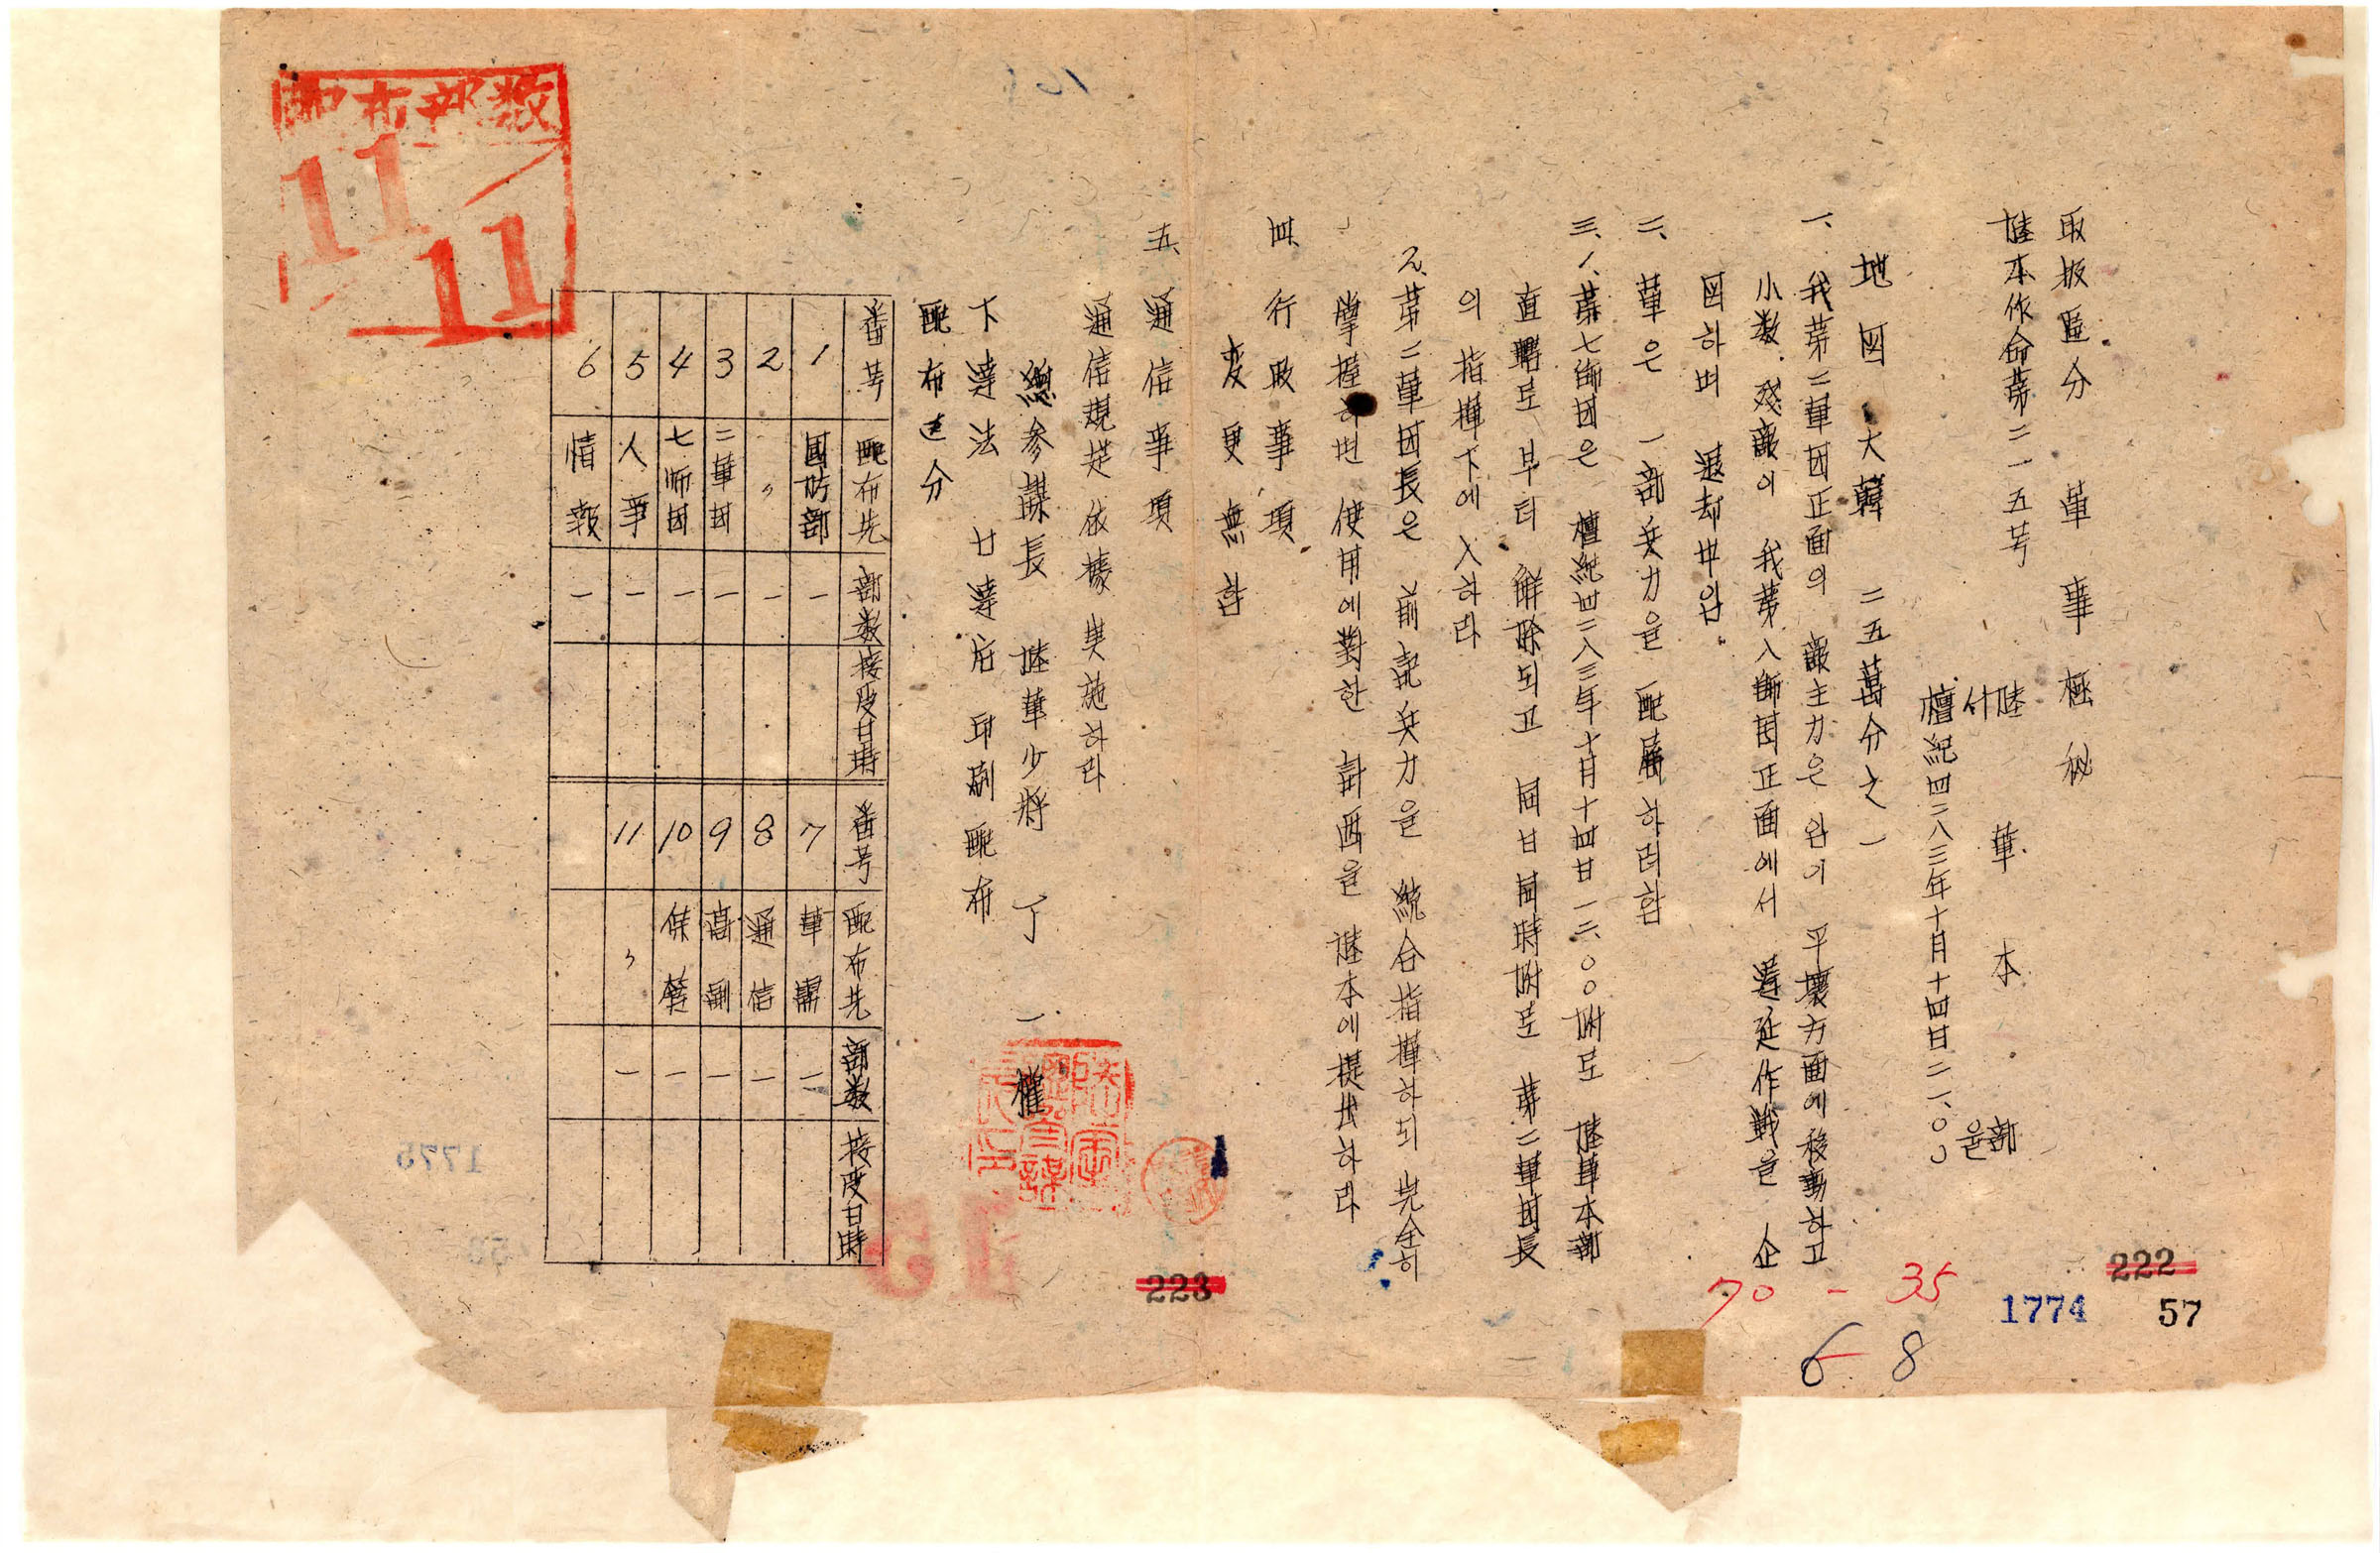 取扱區分 軍事極秘
陸本作命第二一五号
陸軍本部
서울
檀紀四二八三年十月十四日二一、〇〇
地図 大韓 二五萬分之一
一、我第二軍団正面의 敵主力은 임이 平壤方面에 移動하고
小数 残敵이 我第八師団正面에서 遅延作戦을 企
図하며 退却中임
二、軍은 一部兵力을 配属하려함
三、1、第七師団은 檀紀四二八三年十月十四日一二、〇〇附로 陸軍本部
直轄로부터 解除되고 同日同時附로 第二軍団長
의 指揮下에 入하라
2、第二軍団長은 前記兵力을 統合指揮하되 完全히
掌握하면 使用에對한 計画을 陸本에提出하라
四、行政事項
変更無함
五、通信事項
通信規定依據実施하라
総参謀長 陸軍少將 丁一權
下達法 口達后 印刷配布
配布区分
番号 配布先 部数 接受日時 番号 配布先 部数 接受日時
1 國防部 一 7 軍需 一
2 〃 一 8 通信 一
3 二軍団 一 9 高副 一
4 七師団 一 10 作戦 一
5 人事 一 11 〃 一
6 情報 一
配布部数
11/11
222
1774
57
70-35
6 8
223
1775